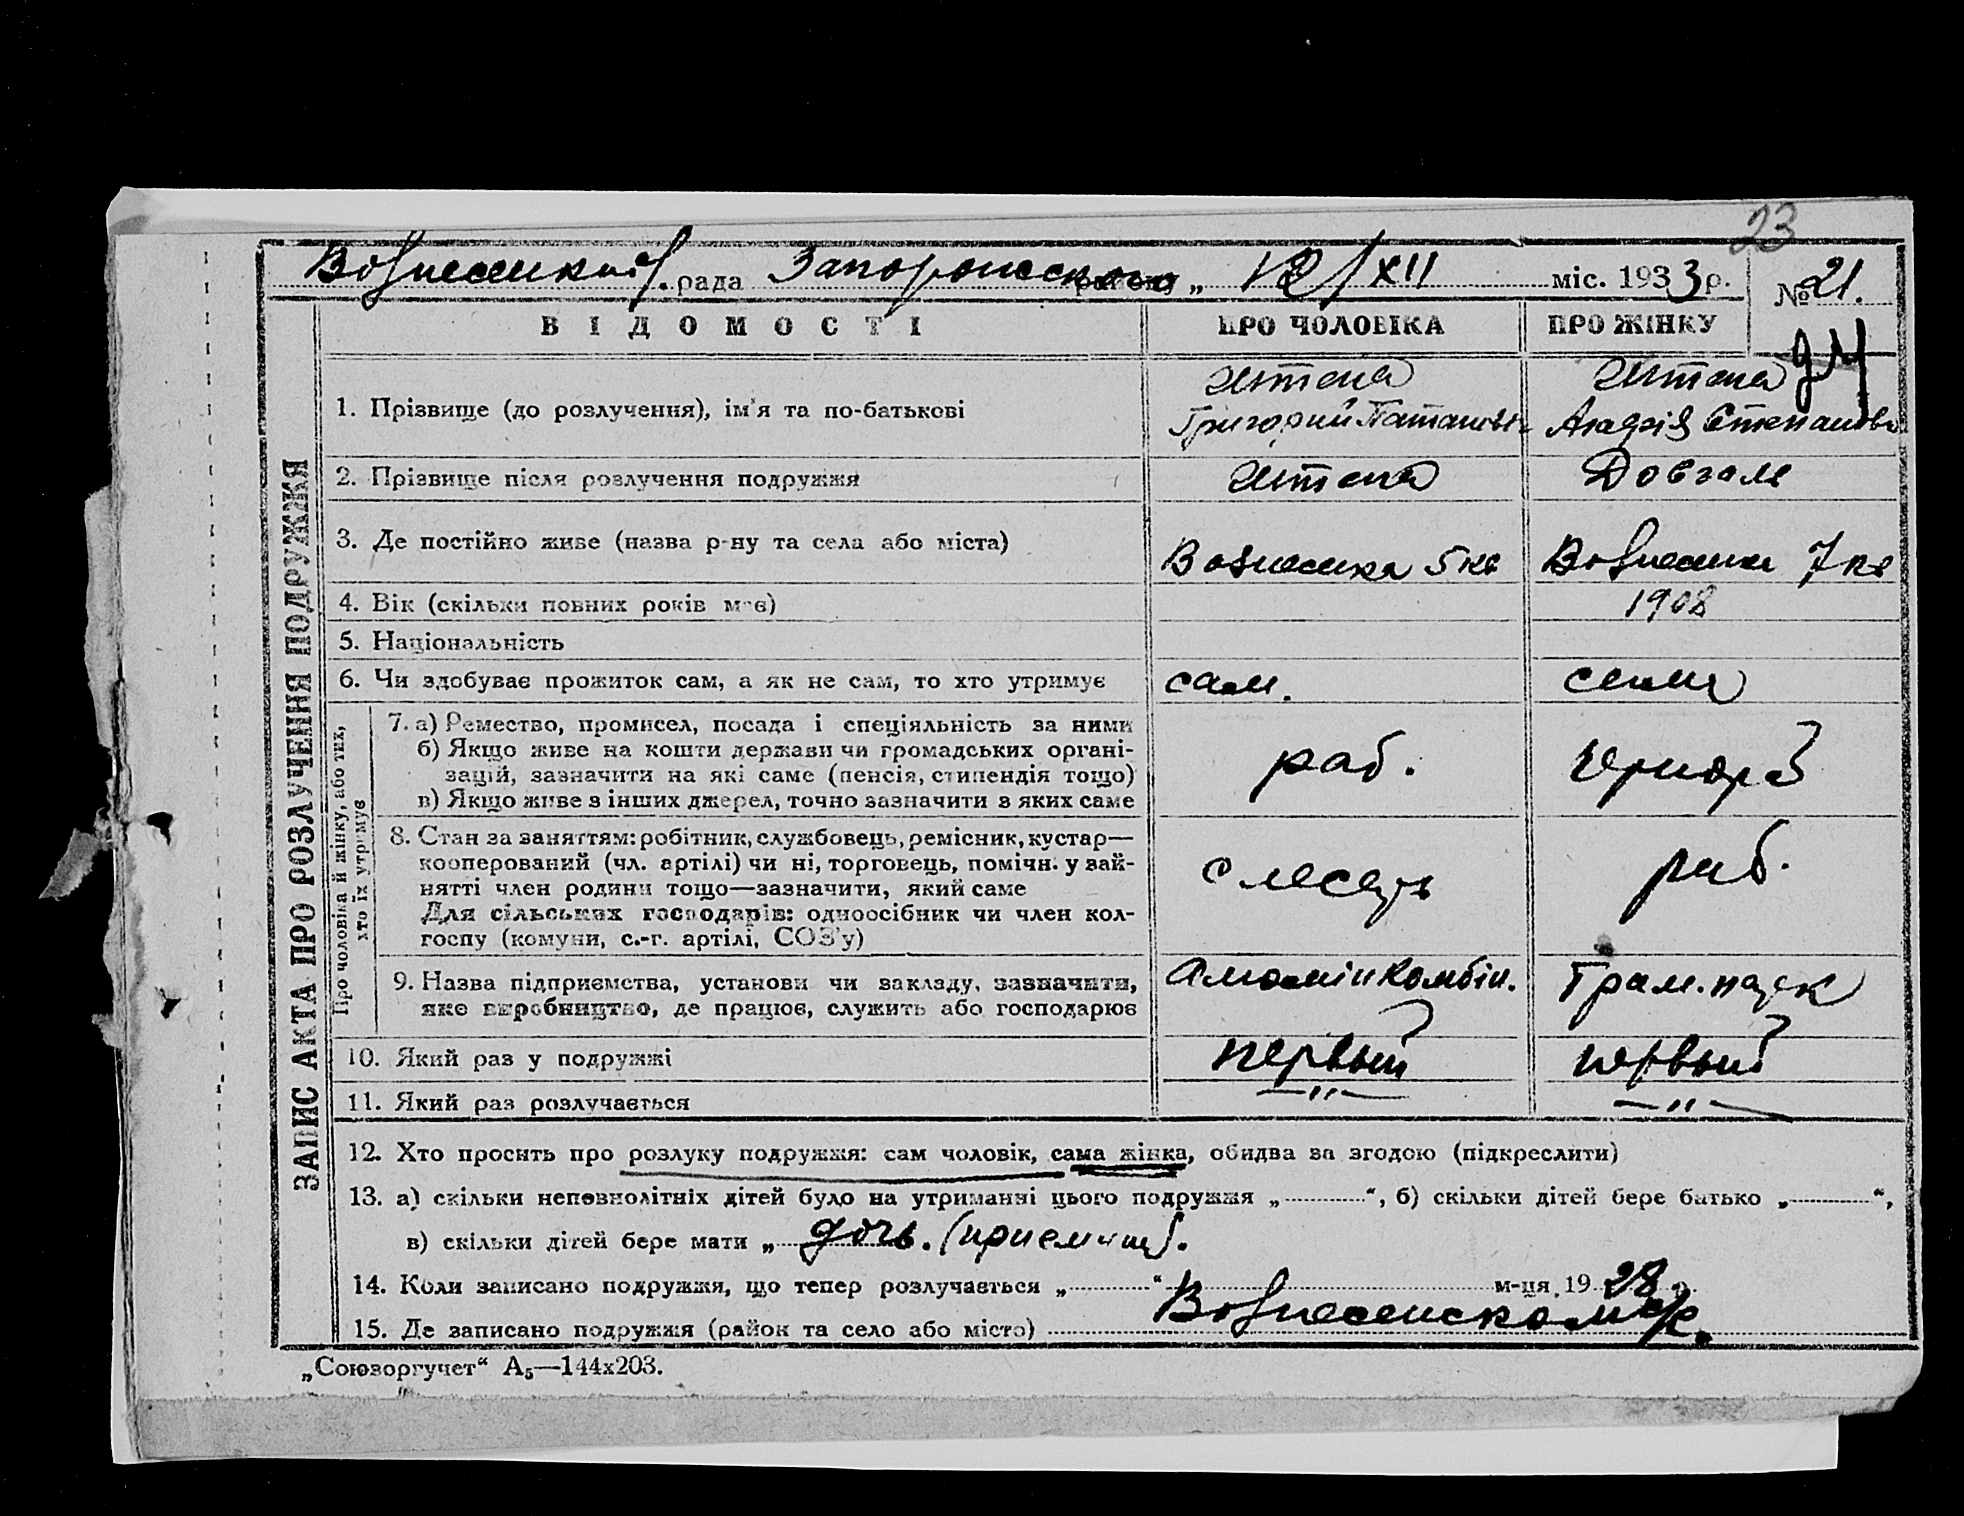 23
Вознесенський. рада Запорожского „ 12/XII міс. 1933 р. № 21.
ВІДОМОСТІ ПРО ЧОЛОВІКА ПРО ЖІНКУ
ЗАПИС АКТА ПРО РОЗЛУЧЕННЯ ПОДРУЖЖЯ
1. Прізвище (до розлучення), ім'я та по-батькові
Григорий
Степановн
2. Прізвище після розлучення подружжя Довгаль
3. Де постійно живе (назва р-ну та села або міста) Вознесенка 5 кв Вознесенки 7 кв
4. Вік (скільки повних років має) 1908
5. Національність
6. Чи здобуває прожиток сам, а як не сам, то хто утримує сам. сама
Про чоловіка й жінку, або тих,
хто їх утримує
7. а) Ремество, промисел, посада і спеціяльність за ними
б) Якщо живе на кошти держави чи громадських органі-
зацій, зазначити на які саме (пенсія, стипендія тощо) раб.
в) Якщо живе з інших джерел, точно зазначити з яких саме
8. Стан за заняттям: робітник, службовець, ремісник, кустар—
кооперований (чл. артілі) чи ні, торговець, помічн. у зай-
нятті член родини тощо—зазначити, який саме слесарь раб.
Для сільських господарів: одноосібник чи член кол-
госпу (комуни, с.-г. артілі, СОЗ'у)
9. Назва підприємства, установи чи закладу, зазначити, Алюмінкомбін.
яке виробництво, де працює, служить або господарює
10. Який раз у подружжі первый первый
11. Який раз розлучається —"— —"—
12. Хто просить про розлуку подружжя: сам чоловік, сама жінка, обидва за згодою (підкреслити)
13. а) скільки неповнолітніх дітей було на утриманні цього подружжя „ “, б) скільки дітей бере батько „ “,
в) скільки дітей бере мати „ дочь.
14. Коли записано подружжя, що тепер розлучається „ “ м-ця 1928 р.
15. Де записано подружжя (район та село або місто)
„Союзоргучет“ А₅—144х203.